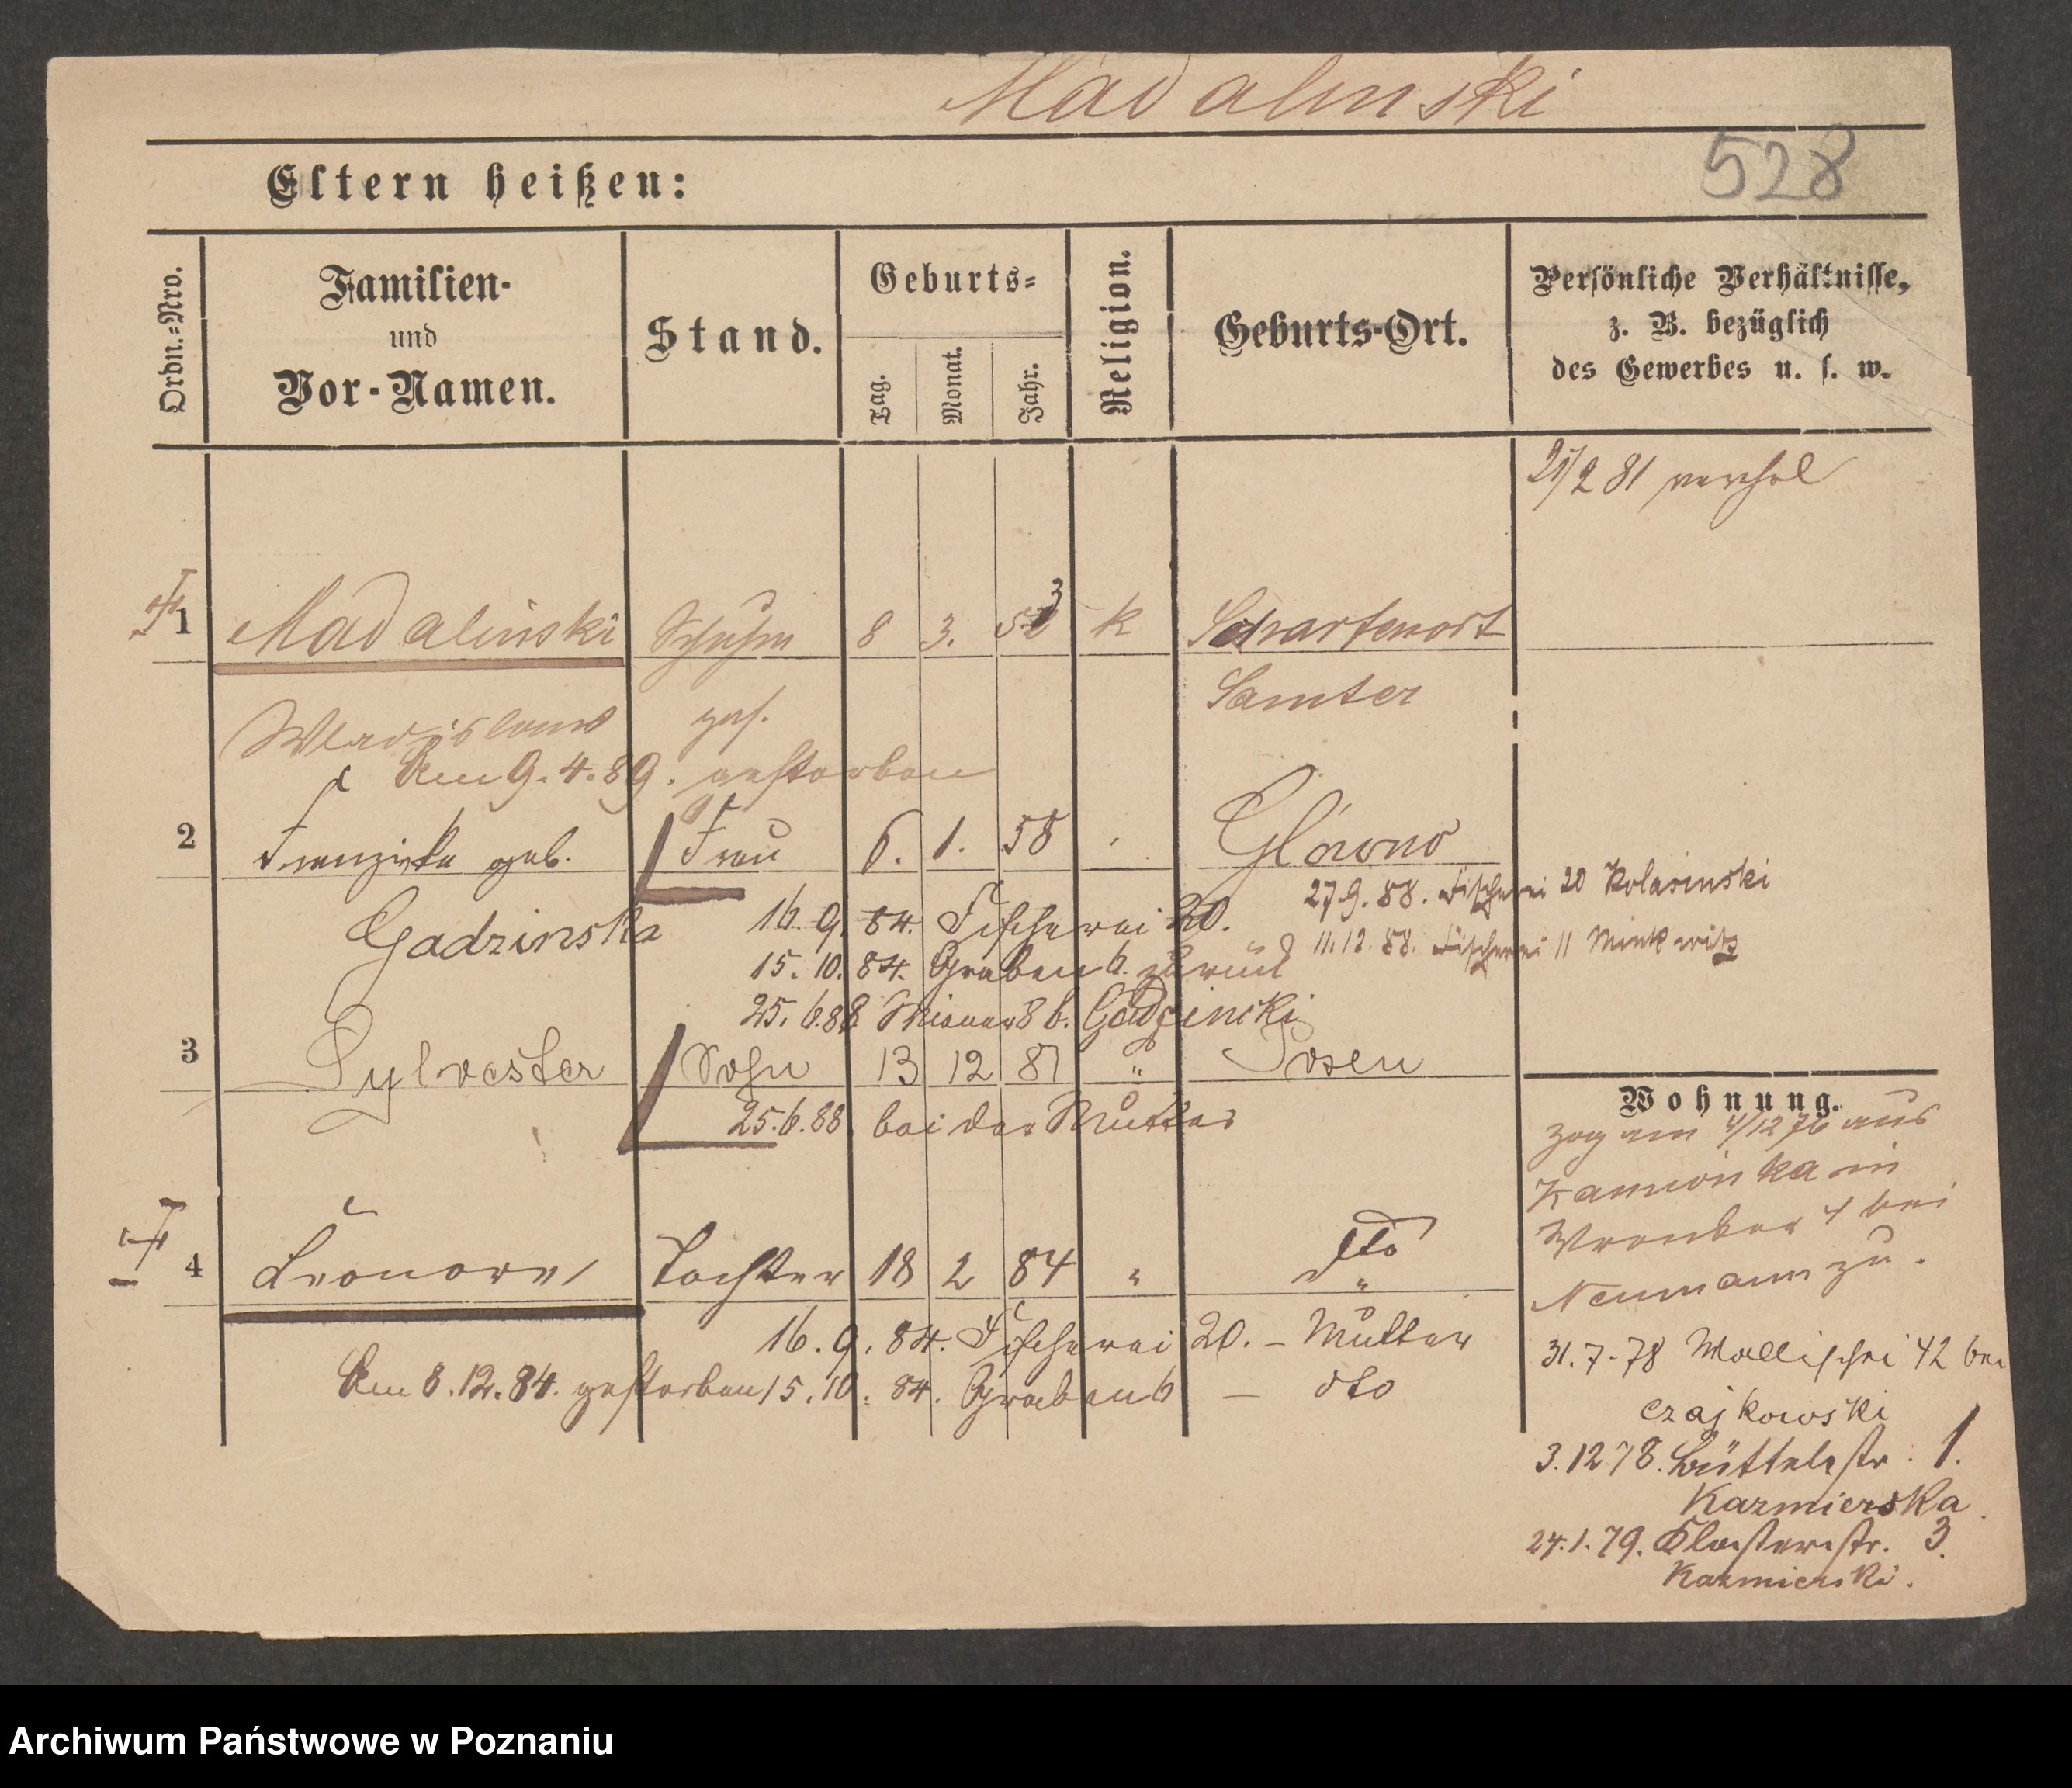 Madalinski
528
Eltern heißen:
Ordn.=Nro.
Familien-
und
Vor-Namen.
Stand.
Geburts=
Tag.
Monat.
Jahr.
Religion.
Geburts-Ort.
Persönliche Verhältnisse,
z. B. bezüglich
des Gewerbes u. s. w.
2 81
1 Madalinski 8 3. 3 k Scharfenort
Samter
Wladislaus ges.
Am 9.4.89. gestorben
2 Franziska geb. Frau 6. 1. 58 Glowno
Gadzinska
27.9.88. Fischerei 20 Kolasinski
16. 9. 84. Fischerei 20.
11.12.88. Fischerei 11 Minkwitz
15. 10. 84. Graben 6. zurück
25. 6. 88. 8 b. Gadzinski
3 Sylvester Sohn 13 12 81 " Posen
25.6.88. bei der Mutter
4 Leonore Tochter 18 2 84 " dto "
16. 9. 84. Fischerei 20. – Mutter
Am 8.12.84. gestorben 15. 10. 84. Graben 6 – dto
Wohnung.
zog am 4/12 76 aus
Kamionka in
4 bei
Neumann zu.
31.7.78 Wallischei 42 bei
Czajkowski
3.12.78. Büttelstr. 1.
Kazmierska.
24.1.79. Klosterstr. 3.
Kazmierski.
Archiwum Państwowe w Poznaniu